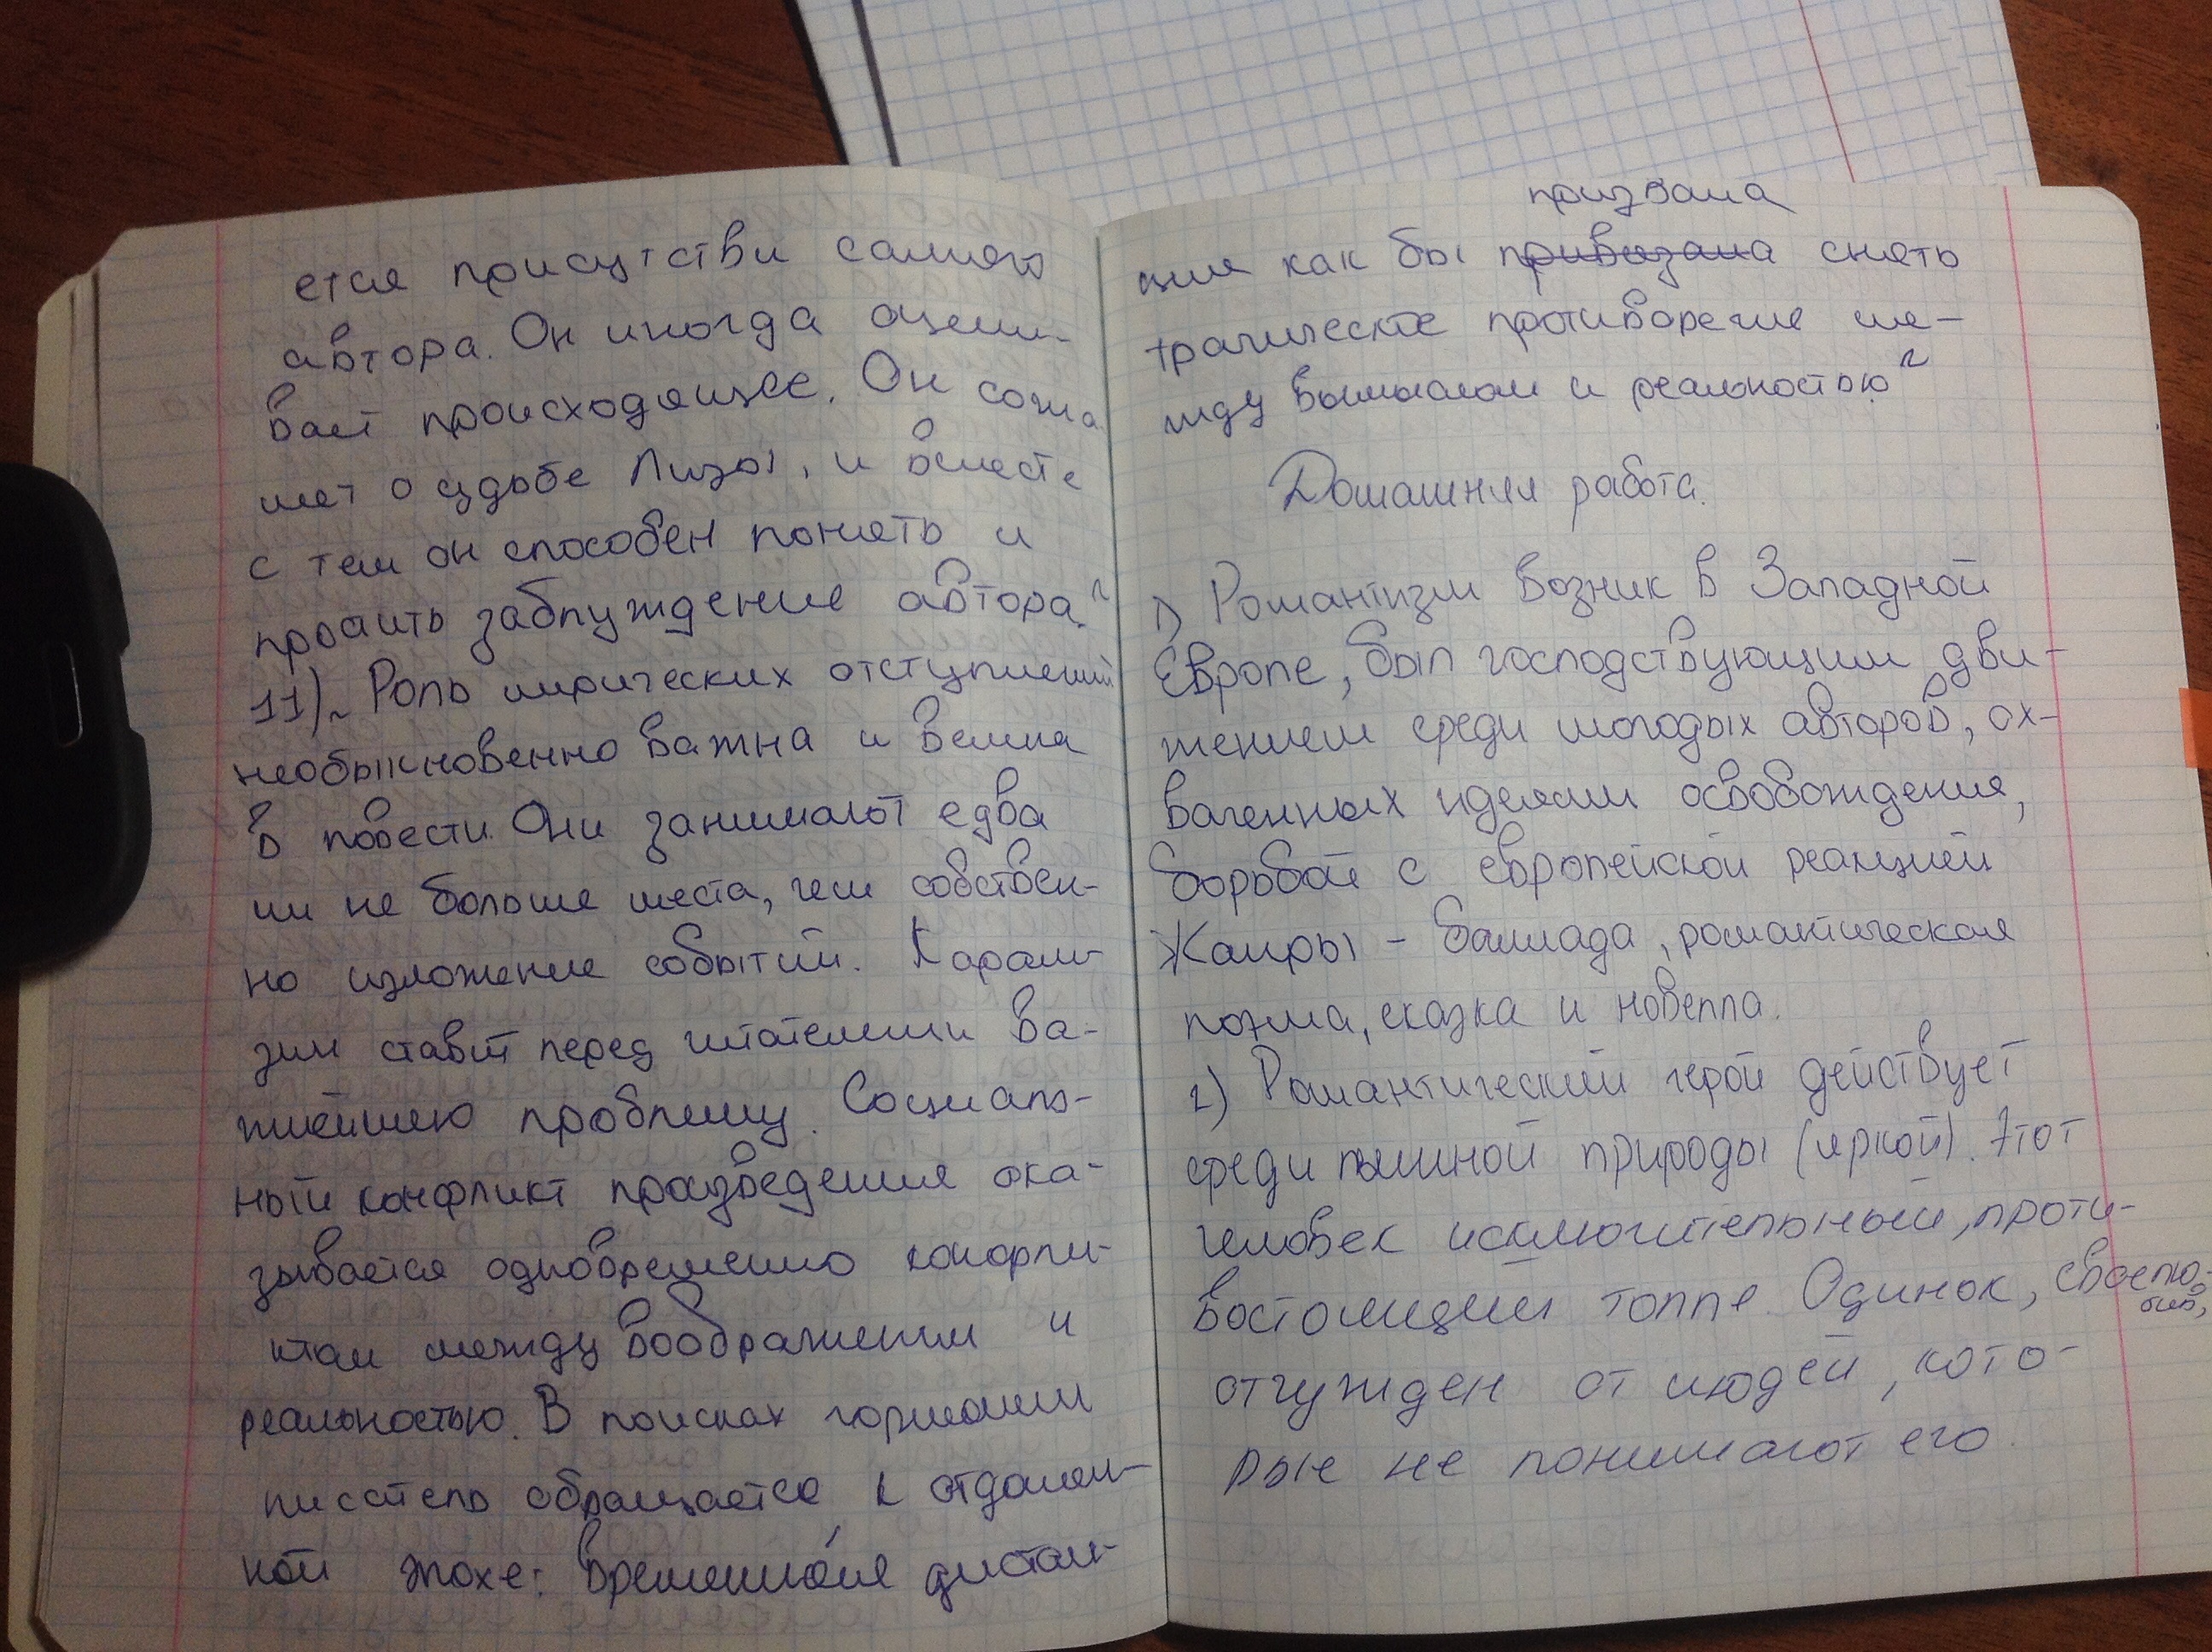 ется присутстви самого
автора. Он иногда оцени-
вает происходящее. Он сожа
леет о судьбе Лизы, и вместе
с тем он способен понять и
простить заблуждение автора."
11)." Роль лирических отступлений
необыкновенно важна и велика
в повести. Они занимают едва
ли не больше места, чем собствен-
но изложение событий. Карам-
зин ставит перед читателями ва-
жнейшую проблему. Социаль-
ный конфликт произведения ока-
зывается одновременно конфли-
ктом между воображением и
реальностью. В поисках гармонии
писатель обращается к отдален-
ной эпохе: временна́я дистан-
призвана
ция как бы привязана снять
трагическое противоречие ме-
жду вымыслом и реальностью"
Домашняя работа.
1) Романтизм возник в Западной
Европе, был господствующим дви-
жением среди молодых авторов, ох-
ваченных идеями освобождения,
борьбой с европейской реакцией
Жанры - баллада, романтическая
поэма, сказка и новелла.
2) Романтический герой действует
среди пышной природы (яркой). Этот
человек исключительный, проти-
востоящий толпе. Одинок, своелю-
бив,
отчужден от людей, кото-
рые не понимают его.